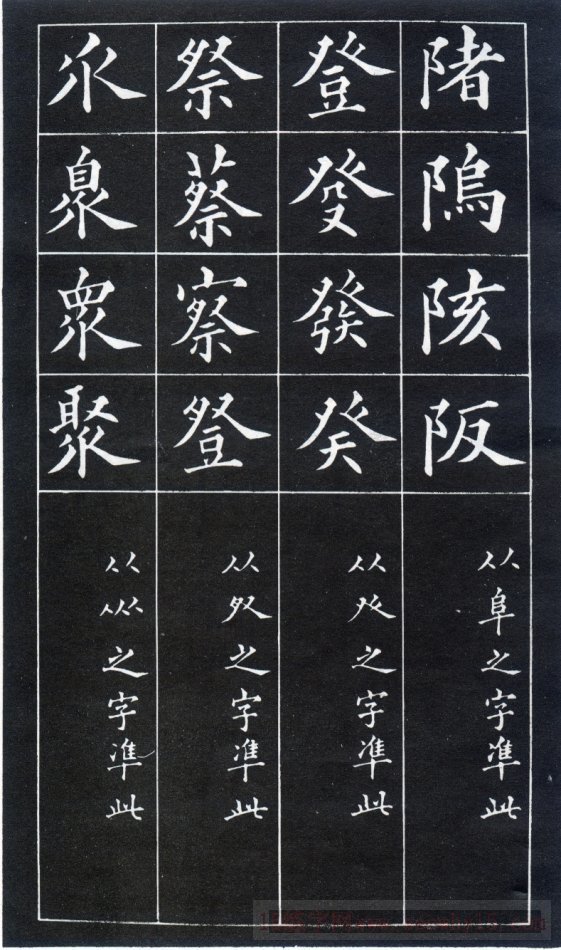 陼隖陔阪从阜之字準此
登癹發癸从癶之字準此
祭蔡察豋从之字準此
㐺臮眾聚从㐺之字準此